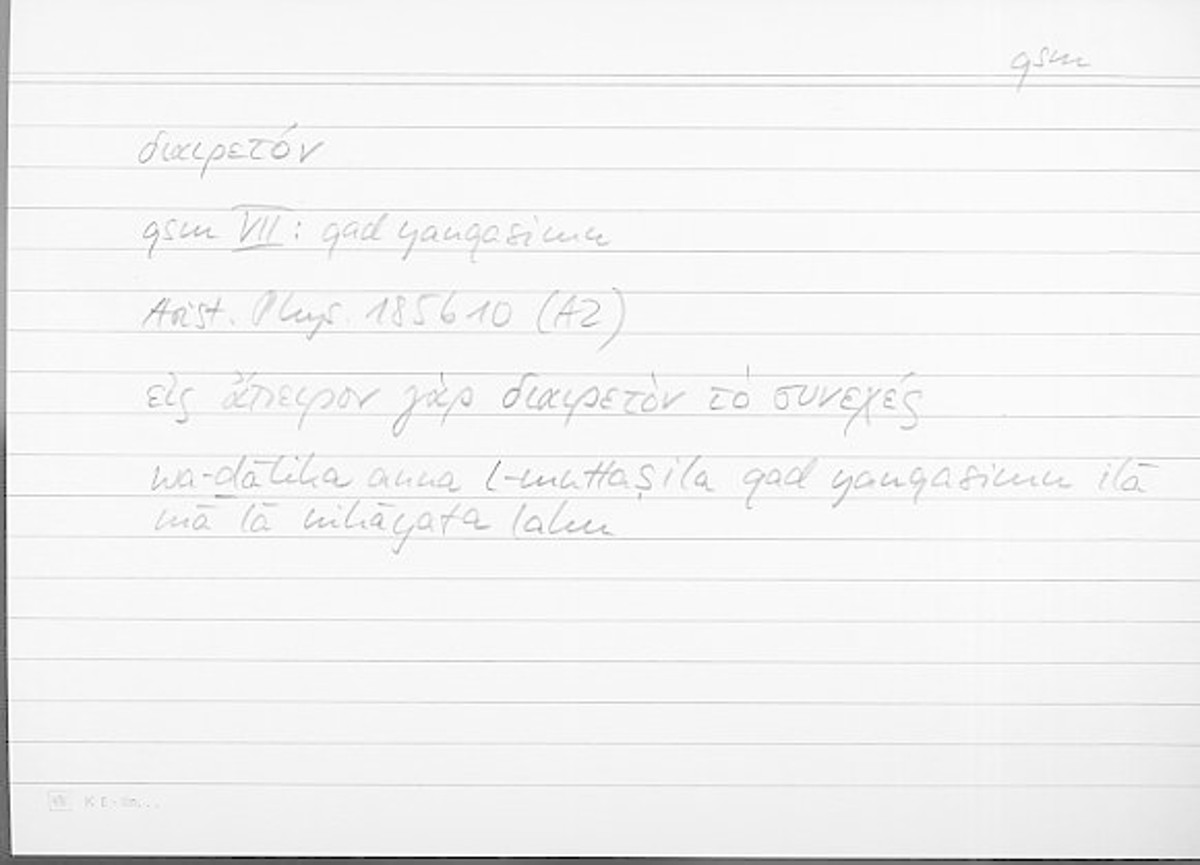 qsm
διαιρετόν
qsm VII: qad yanqasimu
Arist. Phys. 185b10 (A2)
εἰς ἄπειρον γὰρ διαιρετὸν τὸ συνεχές
wa-ḏālika anna l-muttaṣila qad yanqasimu ilā
mā lā nihāyata lahu